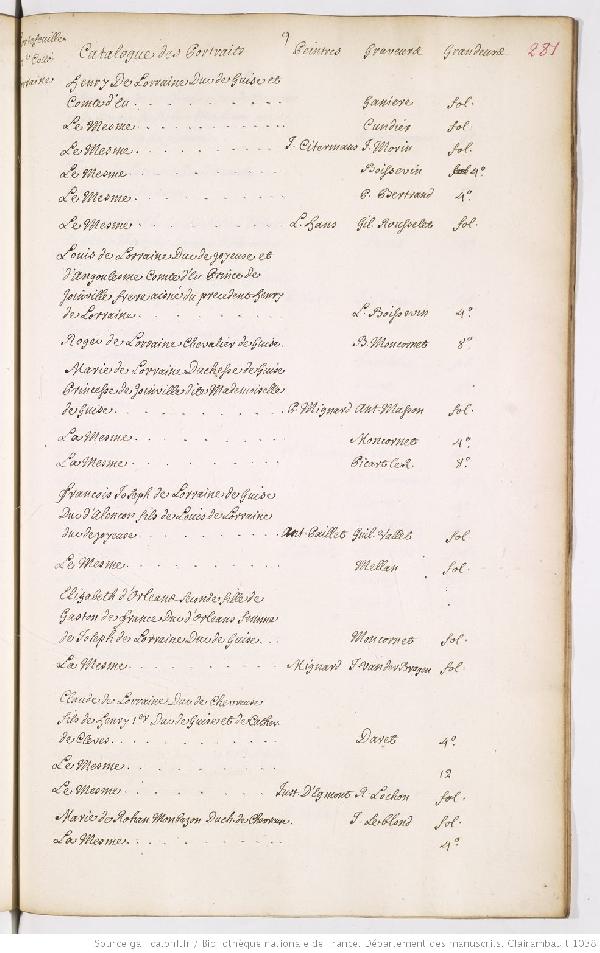 Portefeuille
Catalogue des Portraits Peintres Graveurs Grandeurs 281
Henry De Lorraine Duc de Guise et
Comte d'Eu . . . . . . . . . Ganiere fol.
Le Mesme . . . . . . . . . Cundier fol.
Le Mesme . . . . . . . . . J. Citermans J. Morin fol.
Le Mesme . . . . . . . . . Boissevin 4º.
Le Mesme . . . . . . . . . P. Bertrand 4º.
Le Mesme . . . . . . . . . L. Hans Gil. Rousselet fol.
Louis de Lorraine Duc de joyeuse et
d'Angoulesme Comte d'Eu Prince de
Joinville frere aisné du precedent Henry
de Lorraine . . . . . . . . . L. Boissevin 4º.
Roger de Lorraine Chevalier de Guise B. Moncornet 8º
Marie de Lorraine Duchesse de Guise
Princesse de Joinville dite Mademoiselle
de Guise . . . . . . . . . P. Mignard Ant. Masson fol.
La Mesme . . . . . . . . . Moncornet 4º.
La Mesme . . . . . . . . . Picart le R. 8º.
François Joseph de Lorraine de Guise
Duc d'Alencon fils de Louis de Lorraine
duc de joyeuse . . . . . . . . . Ant. Paillet Guil. Vallet fol
Le Mesme . . . . . . . . . Mellan fol.
Elizabeth d'Orleans seconde fille de
Gaston de france Duc d'Orleans femme
de Joseph de Lorraine Duc de Guise . . . Moncornet fol.
La Mesme . . . . . . . . . Mignard J. Vander Bruggen fol.
Claude de Lorraine Duc de Chevreuse
fils de Henry 1er Duc de Guise et de Cather.
de Cleves . . . . . . . . . Daret 4º.
Le Mesme . . . . . . . . . 12
Le Mesme . . . . . . . . . Just. D'Egmont R. Lochon fol.
Marie de Rohan Montbazon Duch. de Chevreu. J. Leblond fol.
La Mesme . . . . . . . . . 4º
Source gallica.bnf.fr / Bibliothèque nationale de France. Département des manuscrits. Clairambault 1038